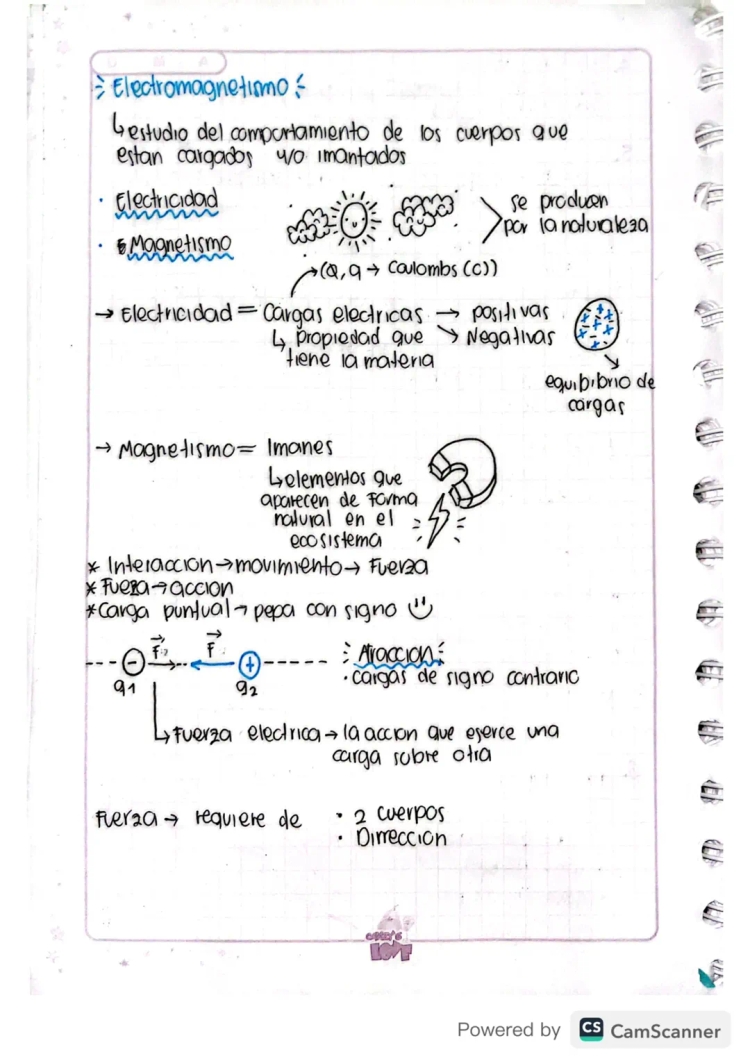 Electromagnetismo
↳ estudio del comportamiento de los cuerpos que
estan cargados y/o imantados
· Electricidad
· Magnetismo
se producen
por la naturaleza
(Q, q → Coulombs (C))
→ Electricidad = Cargas electricas → positivas
↳ Propiedad que ↘ Negativas
tiene la materia
equibibrio de
cargas
→ Magnetismo = Imanes
↳ elementos que
aparecen de Forma
natural en el
ecosistema
* Interaccion → movimiento → Fuerza
* Fuerza → accion
* Carga puntual → pepa con signo
F F
- +
q1 q2
Atraccion
· cargas de signo contrario
↳ Fuerza electrica → la accion que eserce una
carga sobre otra
Fuerza → requiere de · 2 cuerpos
· Dirreccion
LOVE
Powered by CS CamScanner